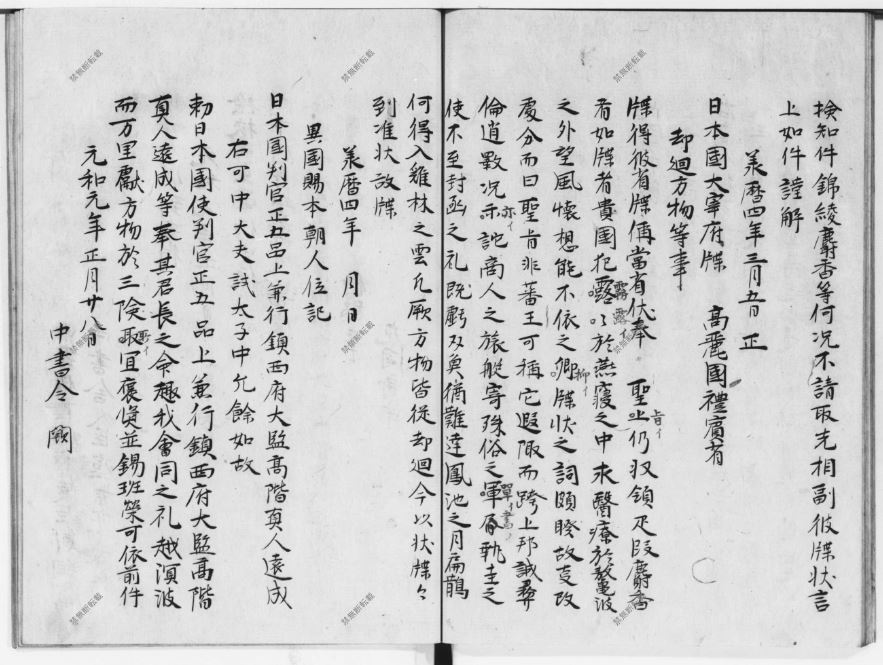 撿知件錦綾麝香等何况不請取先相副彼牒状言
上如件謹解
承曆四年三月五日 正
日本國大宰府牒 高麗國禮賓省
却迴方物等事
牒得彼省牒偁當省伏奉 聖旨仍収領疋段麝香
者如牒者貴國犯霧露於燕寢之中求醫療於鼇波
之外望風懷想能不依之抑牒状之詞頗睽故㕝改
處分而曰聖旨非蕃王可稱宅遐陬而跨上邦誠彛
倫逌斁况亦託商人之旅艇寄殊俗之單書執圭之
使不至封函之礼既虧双魚猶難達鳳池之月扁鵲
何得入雞林之雲凡厥方物皆從却迴今以状牒々
到准状故牒
承曆四年 月 日
異國賜本朝人位記
日本國判官正五品上兼行鎮西府大監高階真人遠成
右可中大夫試太子中允餘如故
勅日本國使判官正五品上兼行鎮西府大監高階
真人遠成等奉其君長之命趣我會同之礼越溟波
而万里獻方物於三險所宜褒奬並錫班榮可依前件
元和元年正月廿八日
中書令 闕
禁無断転載